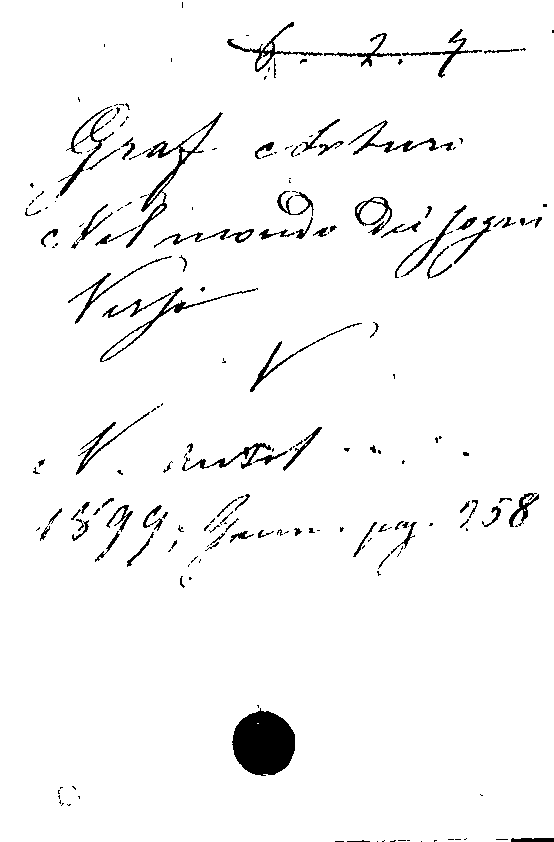 6. 2. 4
Graf Arturo
Nel mondo dei sogni
Versi
V
N. Antol. . . .
1899, Genn. pag. 258